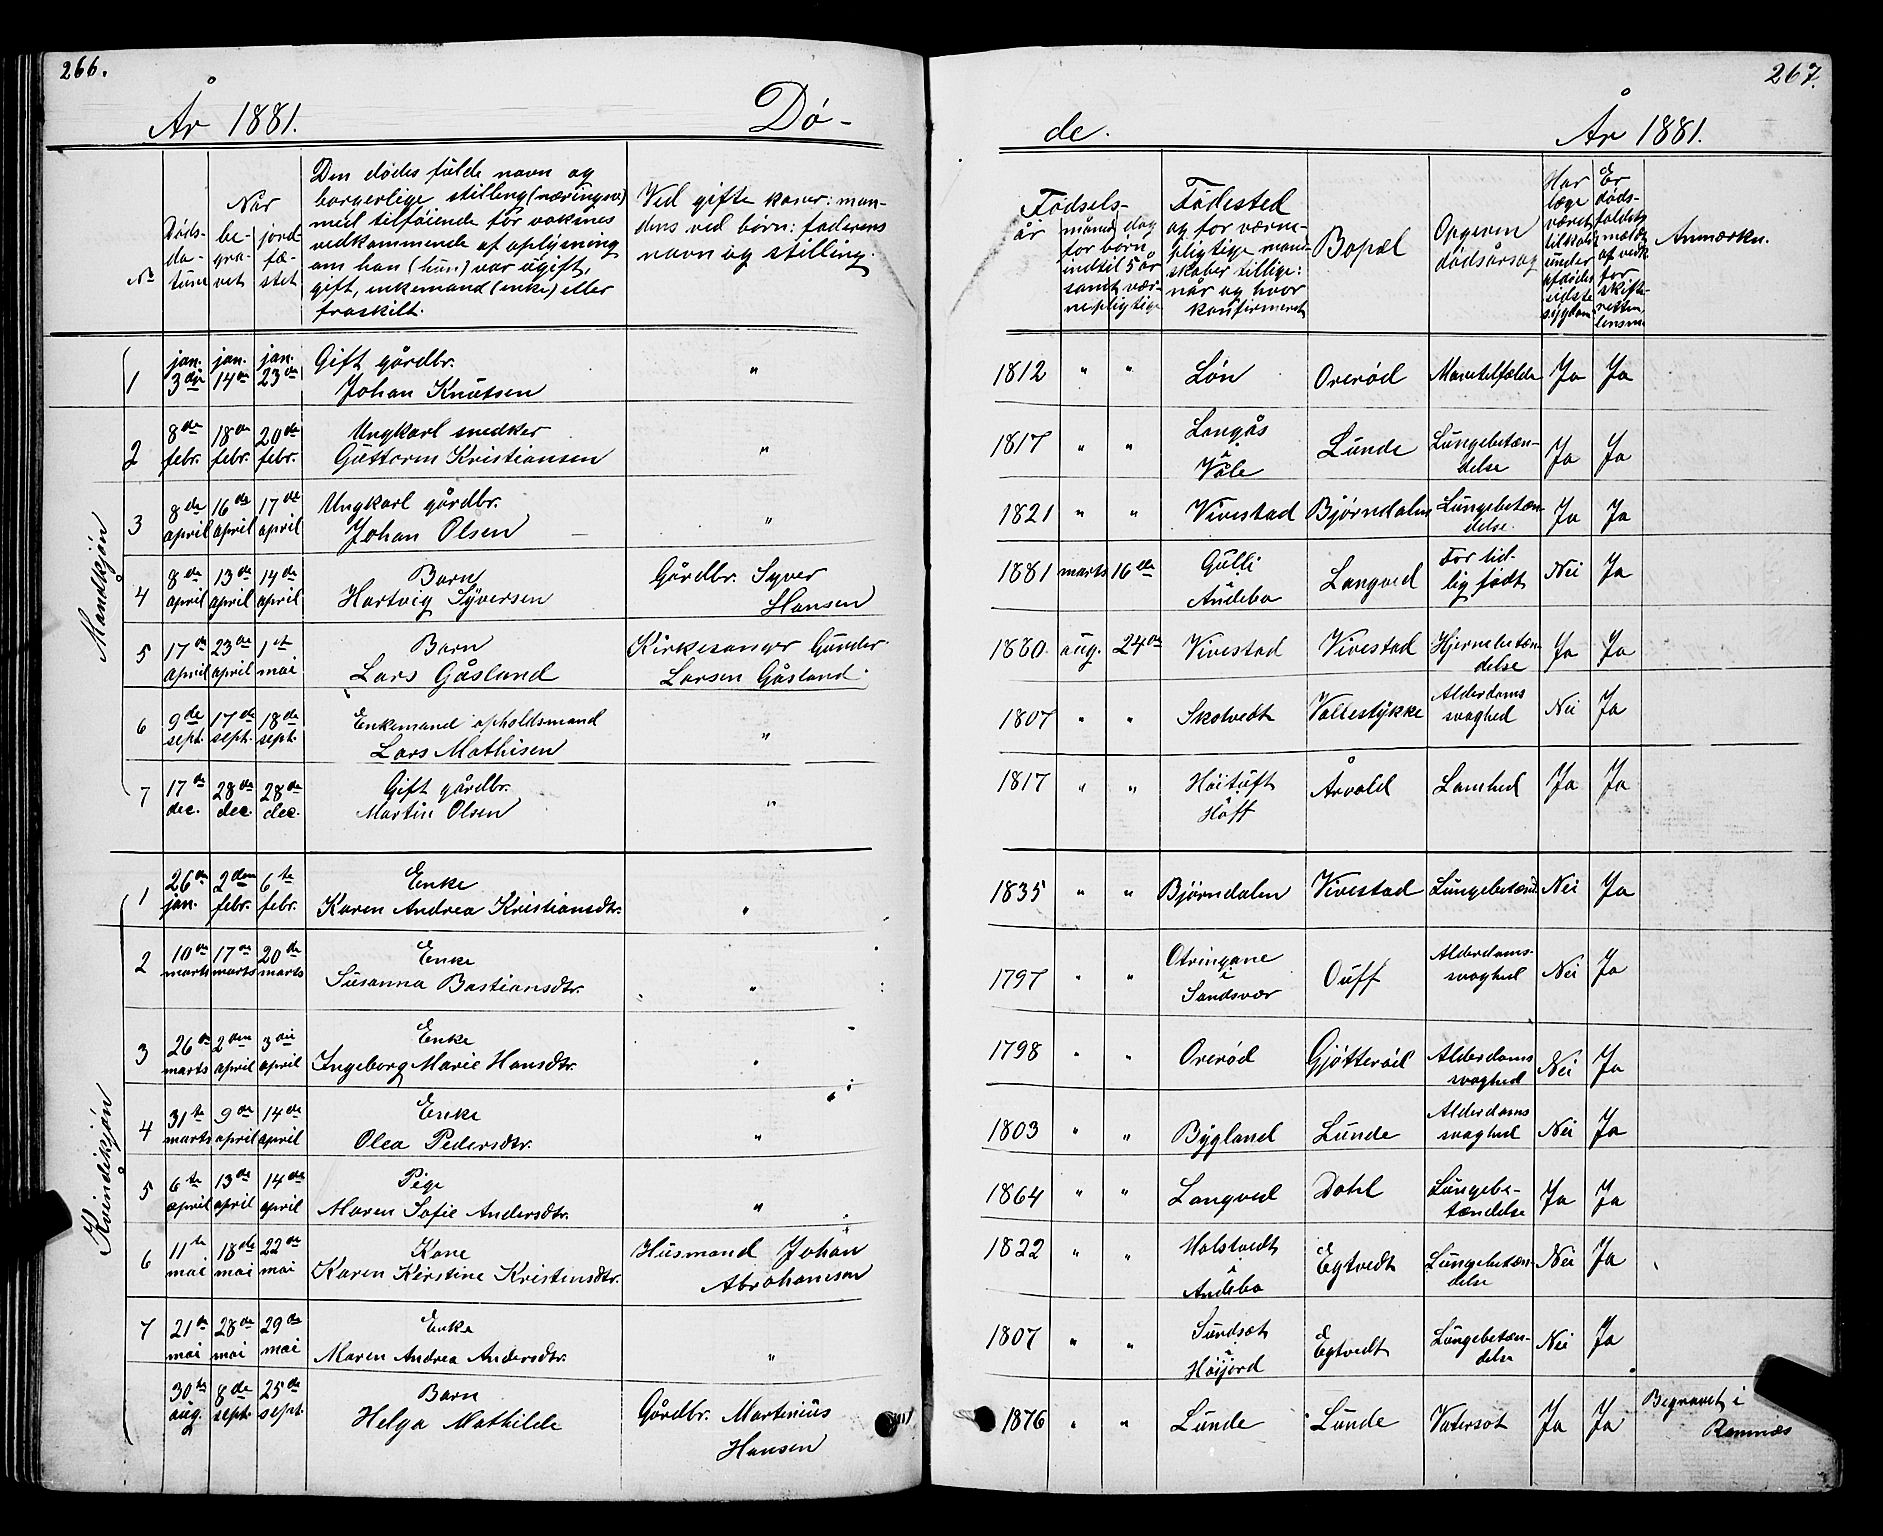 266.
År 1881.
Dø-
Nr
Når
Døds-
da-
tum
be-
gra-
vet
jord
fæ-
stet
Den dødes fulde navn og
borgerlige stilling (næringsv.)
med tilføiende for voksnes
vedkommende af oplysning
om han (hun) var ugift,
gift, enkemand (enke) eller
fraskilt.
Ved gifte koner: man-
dens ved børn: faderens
navn og stilling.
Mandkjøn
1 jan. 3die jan. 14de jan. 23de Gift gårdbr.
Johan Knutsen "
2 8de febr. 18de febr. 20de febr. Ungkarl snedker
Guttorm Kristiansen "
3 8de april 16de april 17de april Ungkarl gårdbr.
Johan Olsen "
4 8de april 13de april 14de april Barn Gårdbr. Syver
Hartvig Syversen Hansen
5 17de april 23de april 1st mai Barn Kirkesanger Gunder
Lars Gåsland Larsen Gåsland.
6 9de sept. 17de sept. 18de sept. Enkemand opholdsmand
Lars Mathisen "
7 17de dec. 28de dec. 28de dec. Gift gårdbr.
Martin Olsen "
Kvindekjøn
1 26de jan. 2den febr. 6te febr. Enke
Karen Andrea Kristiansdtr. "
2 10de marts 17de marts 20de marts Enke
Susanna Bastiansdtr. "
3 26de marts 2den april 3die april Enke
Ingeborg Marie Hansdtr. "
4 31te marts 9de april 14de april Enke
Olea Pedersdtr. "
5 6te april 13de april 14de april Pige
Maren Sofie Andersdtr. "
6 11te mai 18de mai 22de mai Kone Husmand Johan
Karen Kirstine Kristensdtr. Abrahamsen
7 21de mai 28de mai 29de mai Enke
Maren Andrea Andersdtr. "
30te aug. 8de sept. 25de sept. Barn Gårdbr. Martinius
Helga Mathilde Hansen
267.
de.
År 1881.
Fødsels-
år
måned dag
for børn
indtil 5 år
samt vær-
nepligtige
Fødested
og for værne-
pligtige mand-
skaber tillige:
når og hvor
konfirmeret
Bopæl
Opgiven
dødsårsag
Har
læge
været
tilstede
under
afdødes
sidste
sygdom
Er
døds-
faldet
meldt
af vedk.
for
skifte-
retten
lensm.
Anmærkn.
1812 " " Løn Orerød Mavetilfælde Ja Ja
1817 " " Langås i Våle Lunde Lungebetæn-
delse Ja Ja
1821 " " Vivestad Bjørndalen Lungebetæn-
delse. Ja Ja
1881 marts 16de Gulli i Andebo Langved For tid-
lig født Nei Ja
1880 aug. 24de Vivestad Vivestad Hjernebetæn-
delse Ja Ja
1807 " " Skotvedt Vallestykke Alderdoms
svaghed Nei Ja
1817 " " Høituft i Hoff Årvold Lamhed Ja Ja
1835 " " Bjørndalen Vivestad Lungebetænd. Nei Ja
1797 " " Otringane i Sandsvær Ouff Alderdoms-
svaghed Nei Ja
1798 " " Orerød Gjøtterød Alderdoms
svaghed Nei Ja
1803 " " Bygland Lunde Alderdoms
svaghed Nei Ja
1864 " " Langved Dahl Lungebe-
tændelse Ja Ja
1822 " " Holstvedt i Andebo Egtvedt Lungebetæn-
delse Nei Ja
1807 " " Sundset i Høijord Egtvedt Lungebetæn-
delse Nei Ja
1876 " " Lunde Lunde Vatersot Ja Ja Begravet i
Ramnæs